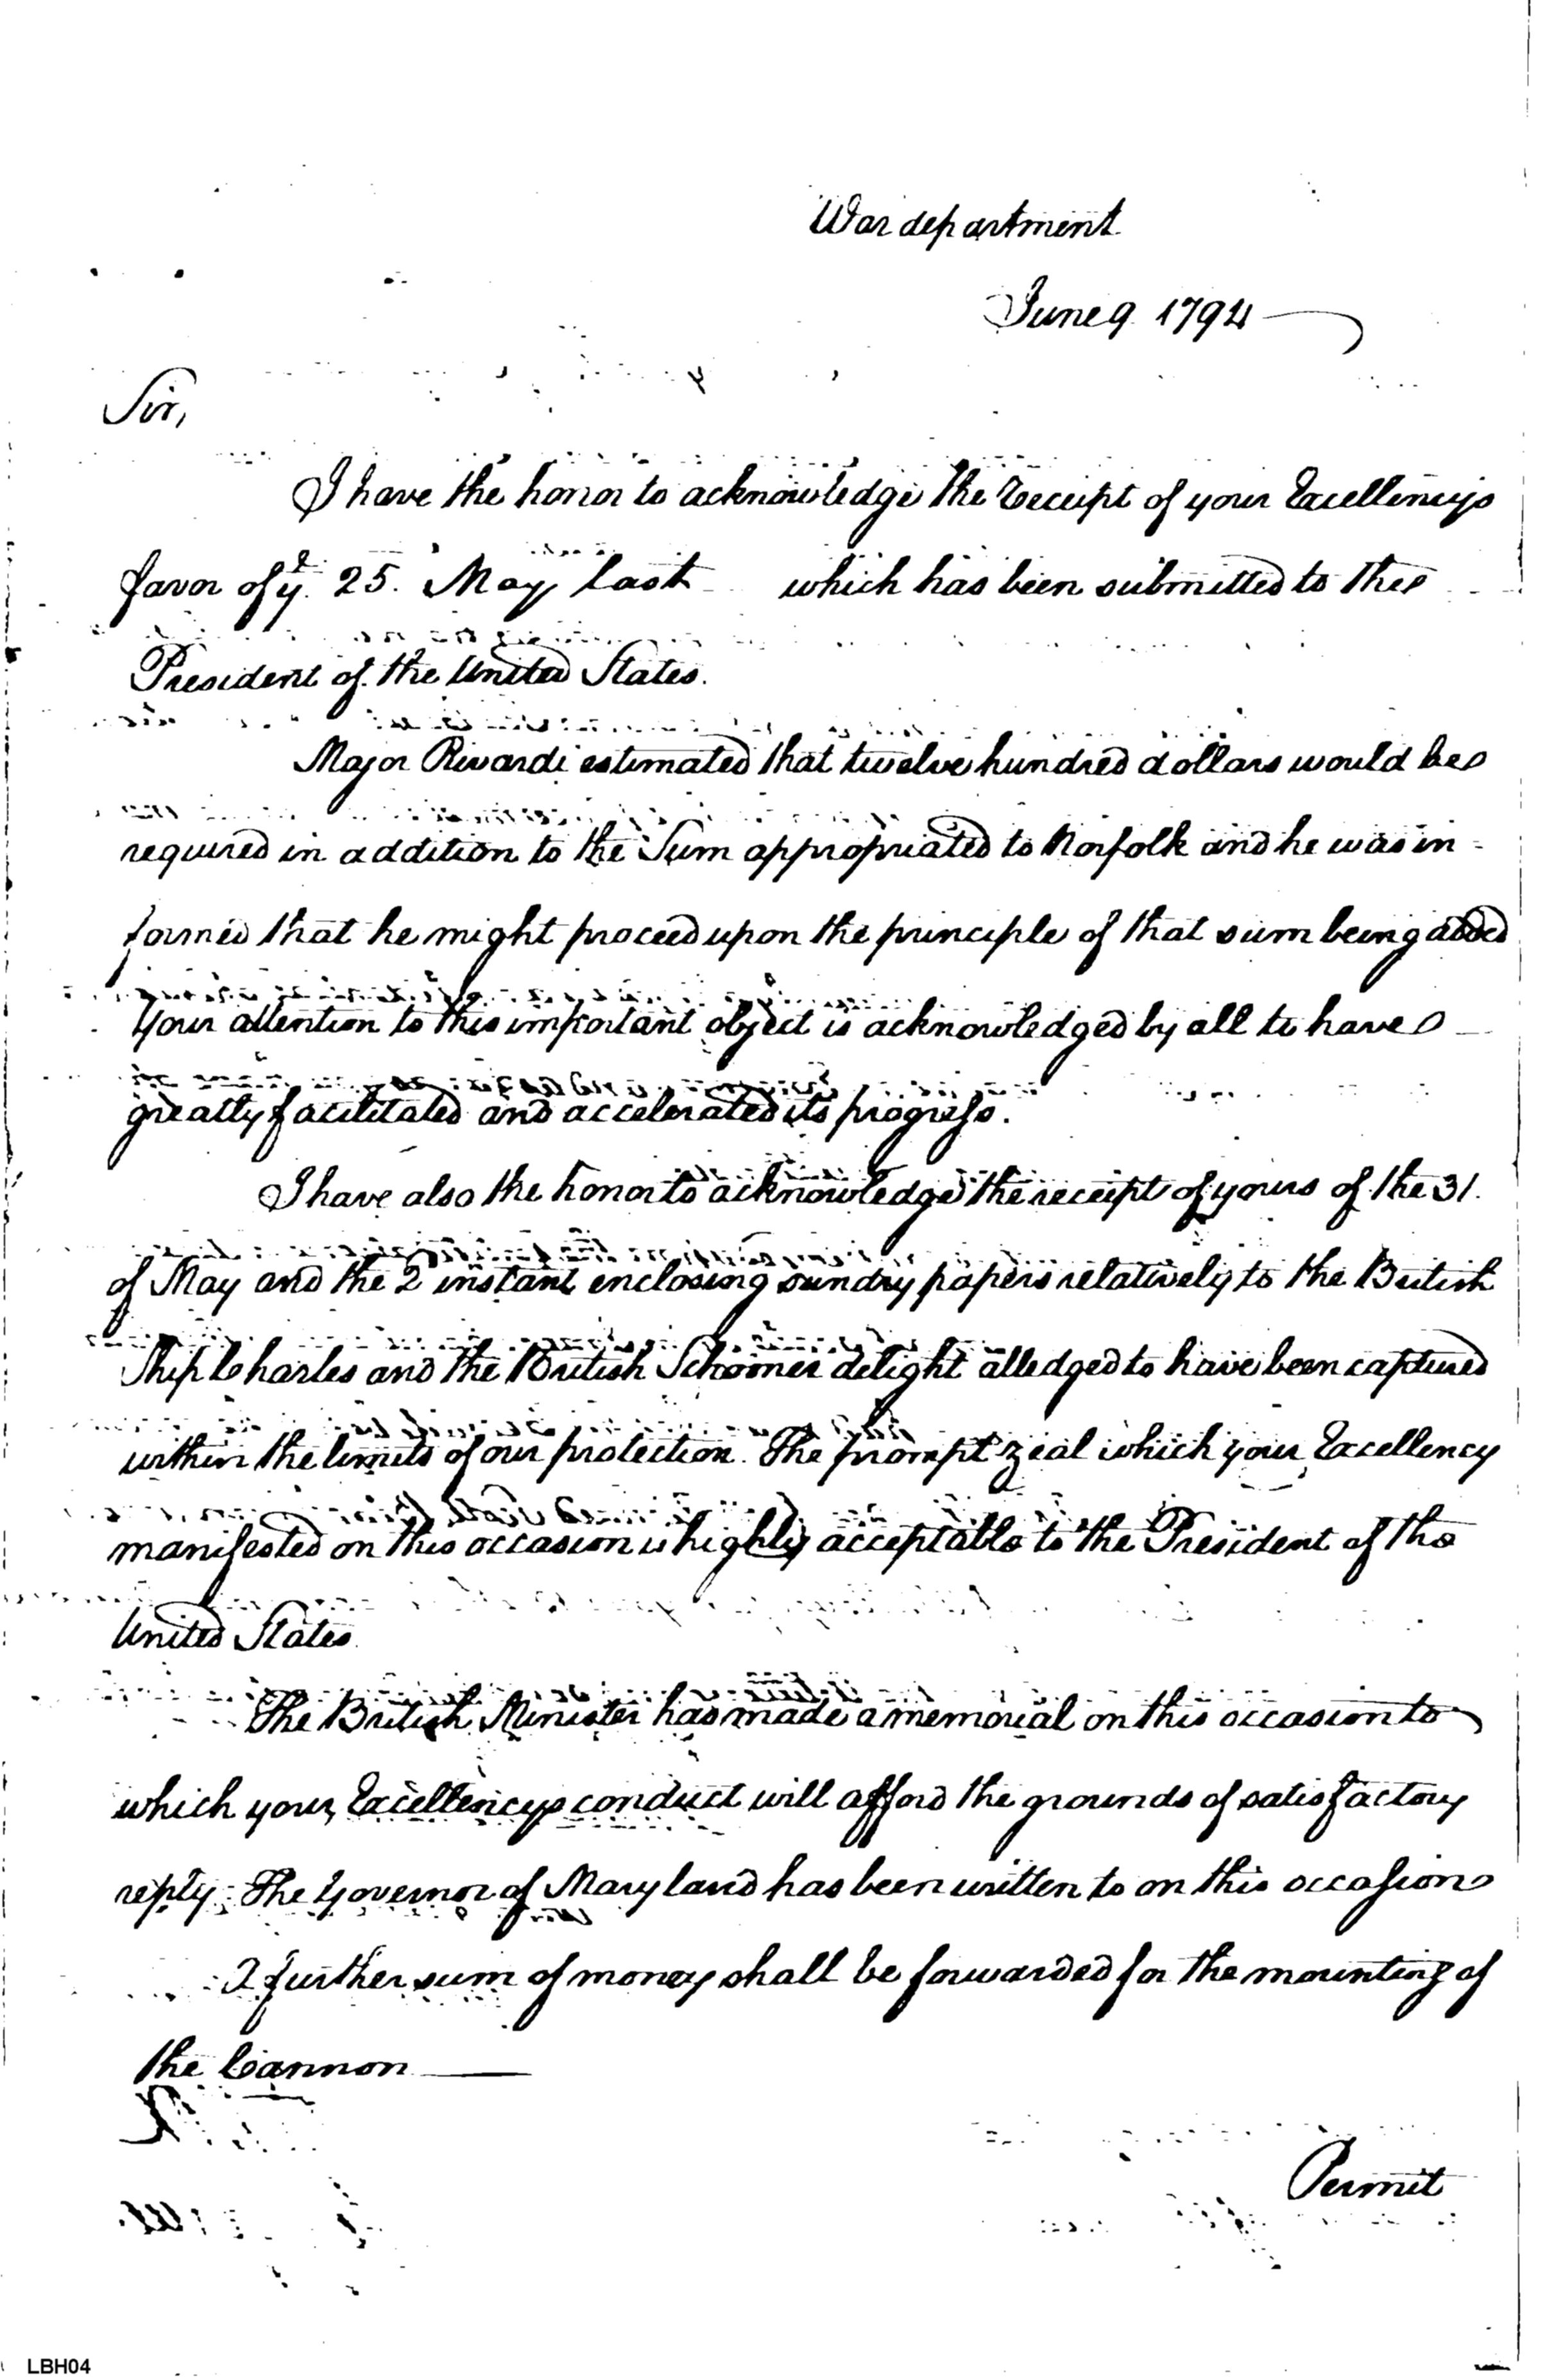 War department
June 9 1794
Sir,
I have the honor to acknowledge the Receipt of your Excellencys
favor of ye. 25. May last which has been submitted to the
President of the United States.
Major Rivardi estimated that twelve hundred dollars would be
required in addition to the Sum appropriated to Norfolk and he was in-
formed that he might proceed upon the principle of that sum being added
Your attention to this important object is acknowledged by all to have
greatly facilitated and accelerated its progress.
I have also the honor to acknowledge the receipt of yours of the 31.
of May and the 2 instant enclosing sundry papers relatively to the British
Ship Charles and the British Schooner delight alledged to have been captured
within the limits of our protection. The prompt zeal which your Excellency
manifested on this occasion is highly acceptable to the President of the
United States.
The British Minister has made a memorial on this occasion to
which your Excellencys conduct will afford the grounds of satisfactory
reply. The Governor of Maryland has been written to on this occasion
A further sum of money shall be forwarded for the mounting of
the Cannon
Permit
LBH04